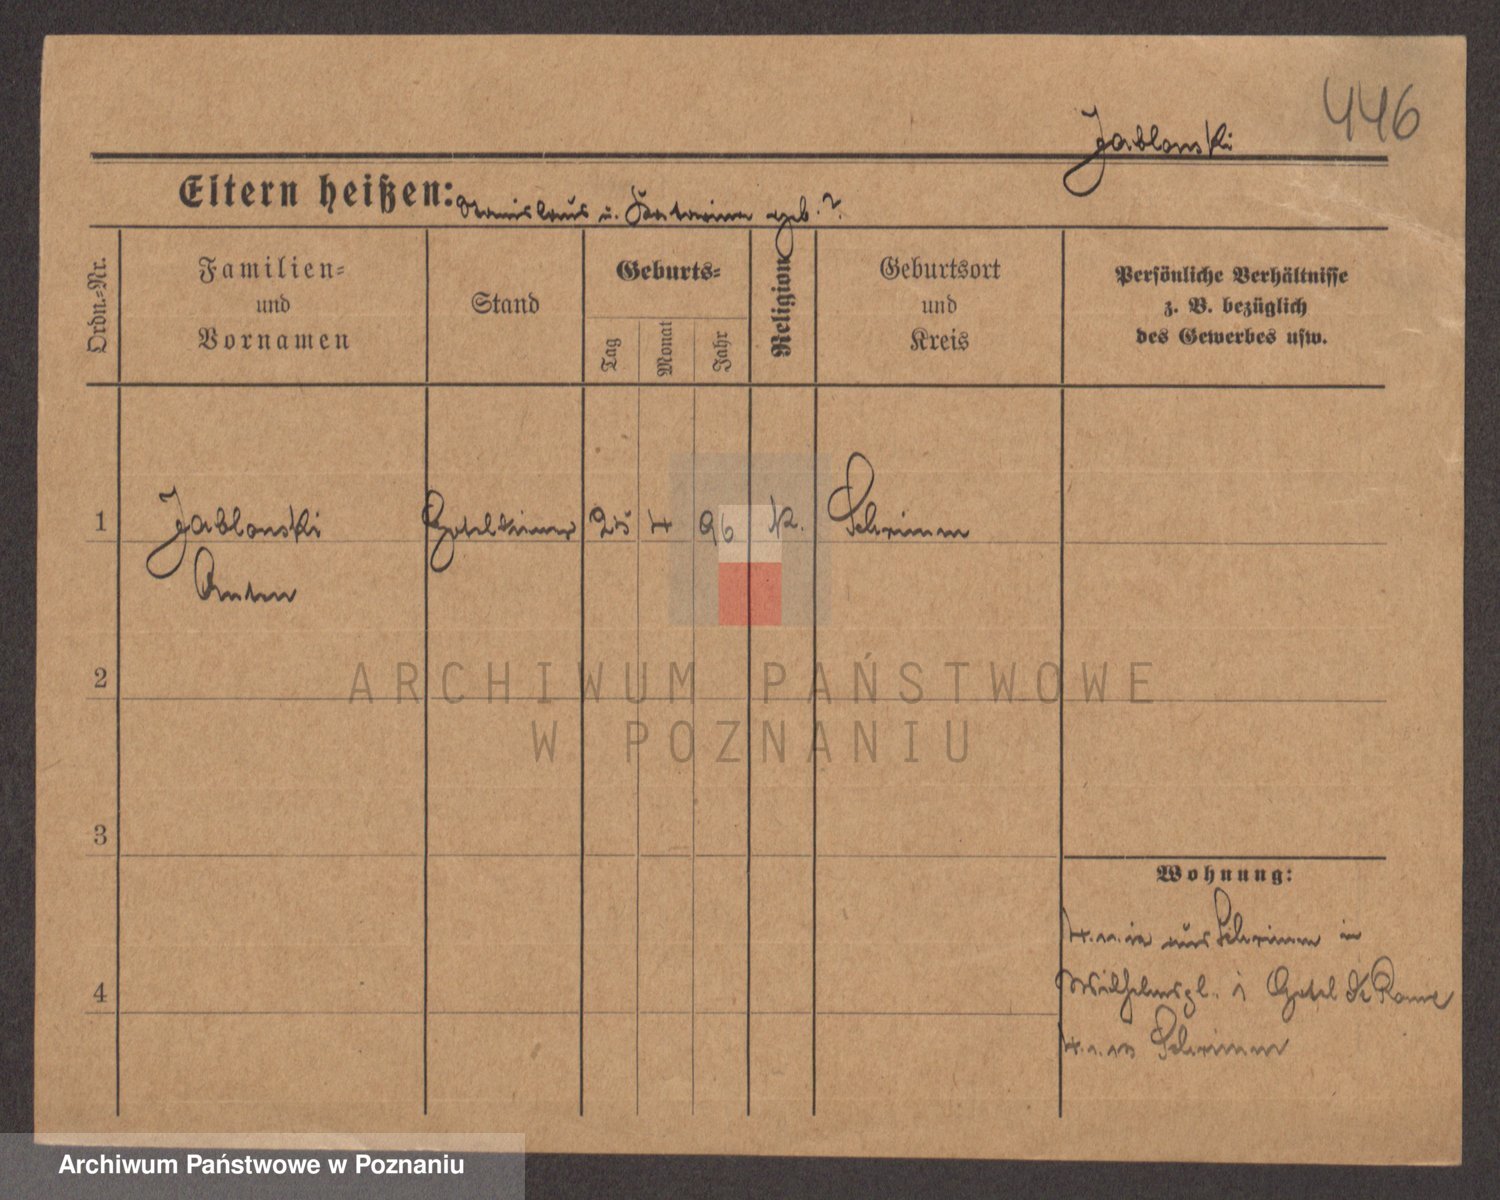 446
Jablonski
Eltern heißen: Stanislaus u. Katarina geb. ?
Ordn.=Nr.
Familien=
und
Vornamen
Stand
Geburts=
Tag
Monat
Jahr
Religion
Geburtsort
und
Kreis
Persönliche Verhältnisse
z. B. bezüglich
des Gewerbes usw.
1 Jablonski 25 4 96 K. Schrimm
Anton
ARCHIWUM PAŃSTWOWE
W POZNANIU
2
3
Wohnung:
aus Schrimm in
Wilhelmspl. 1 Hotel de Rome
4
Schrimm
Archiwum Państwowe w Poznaniu